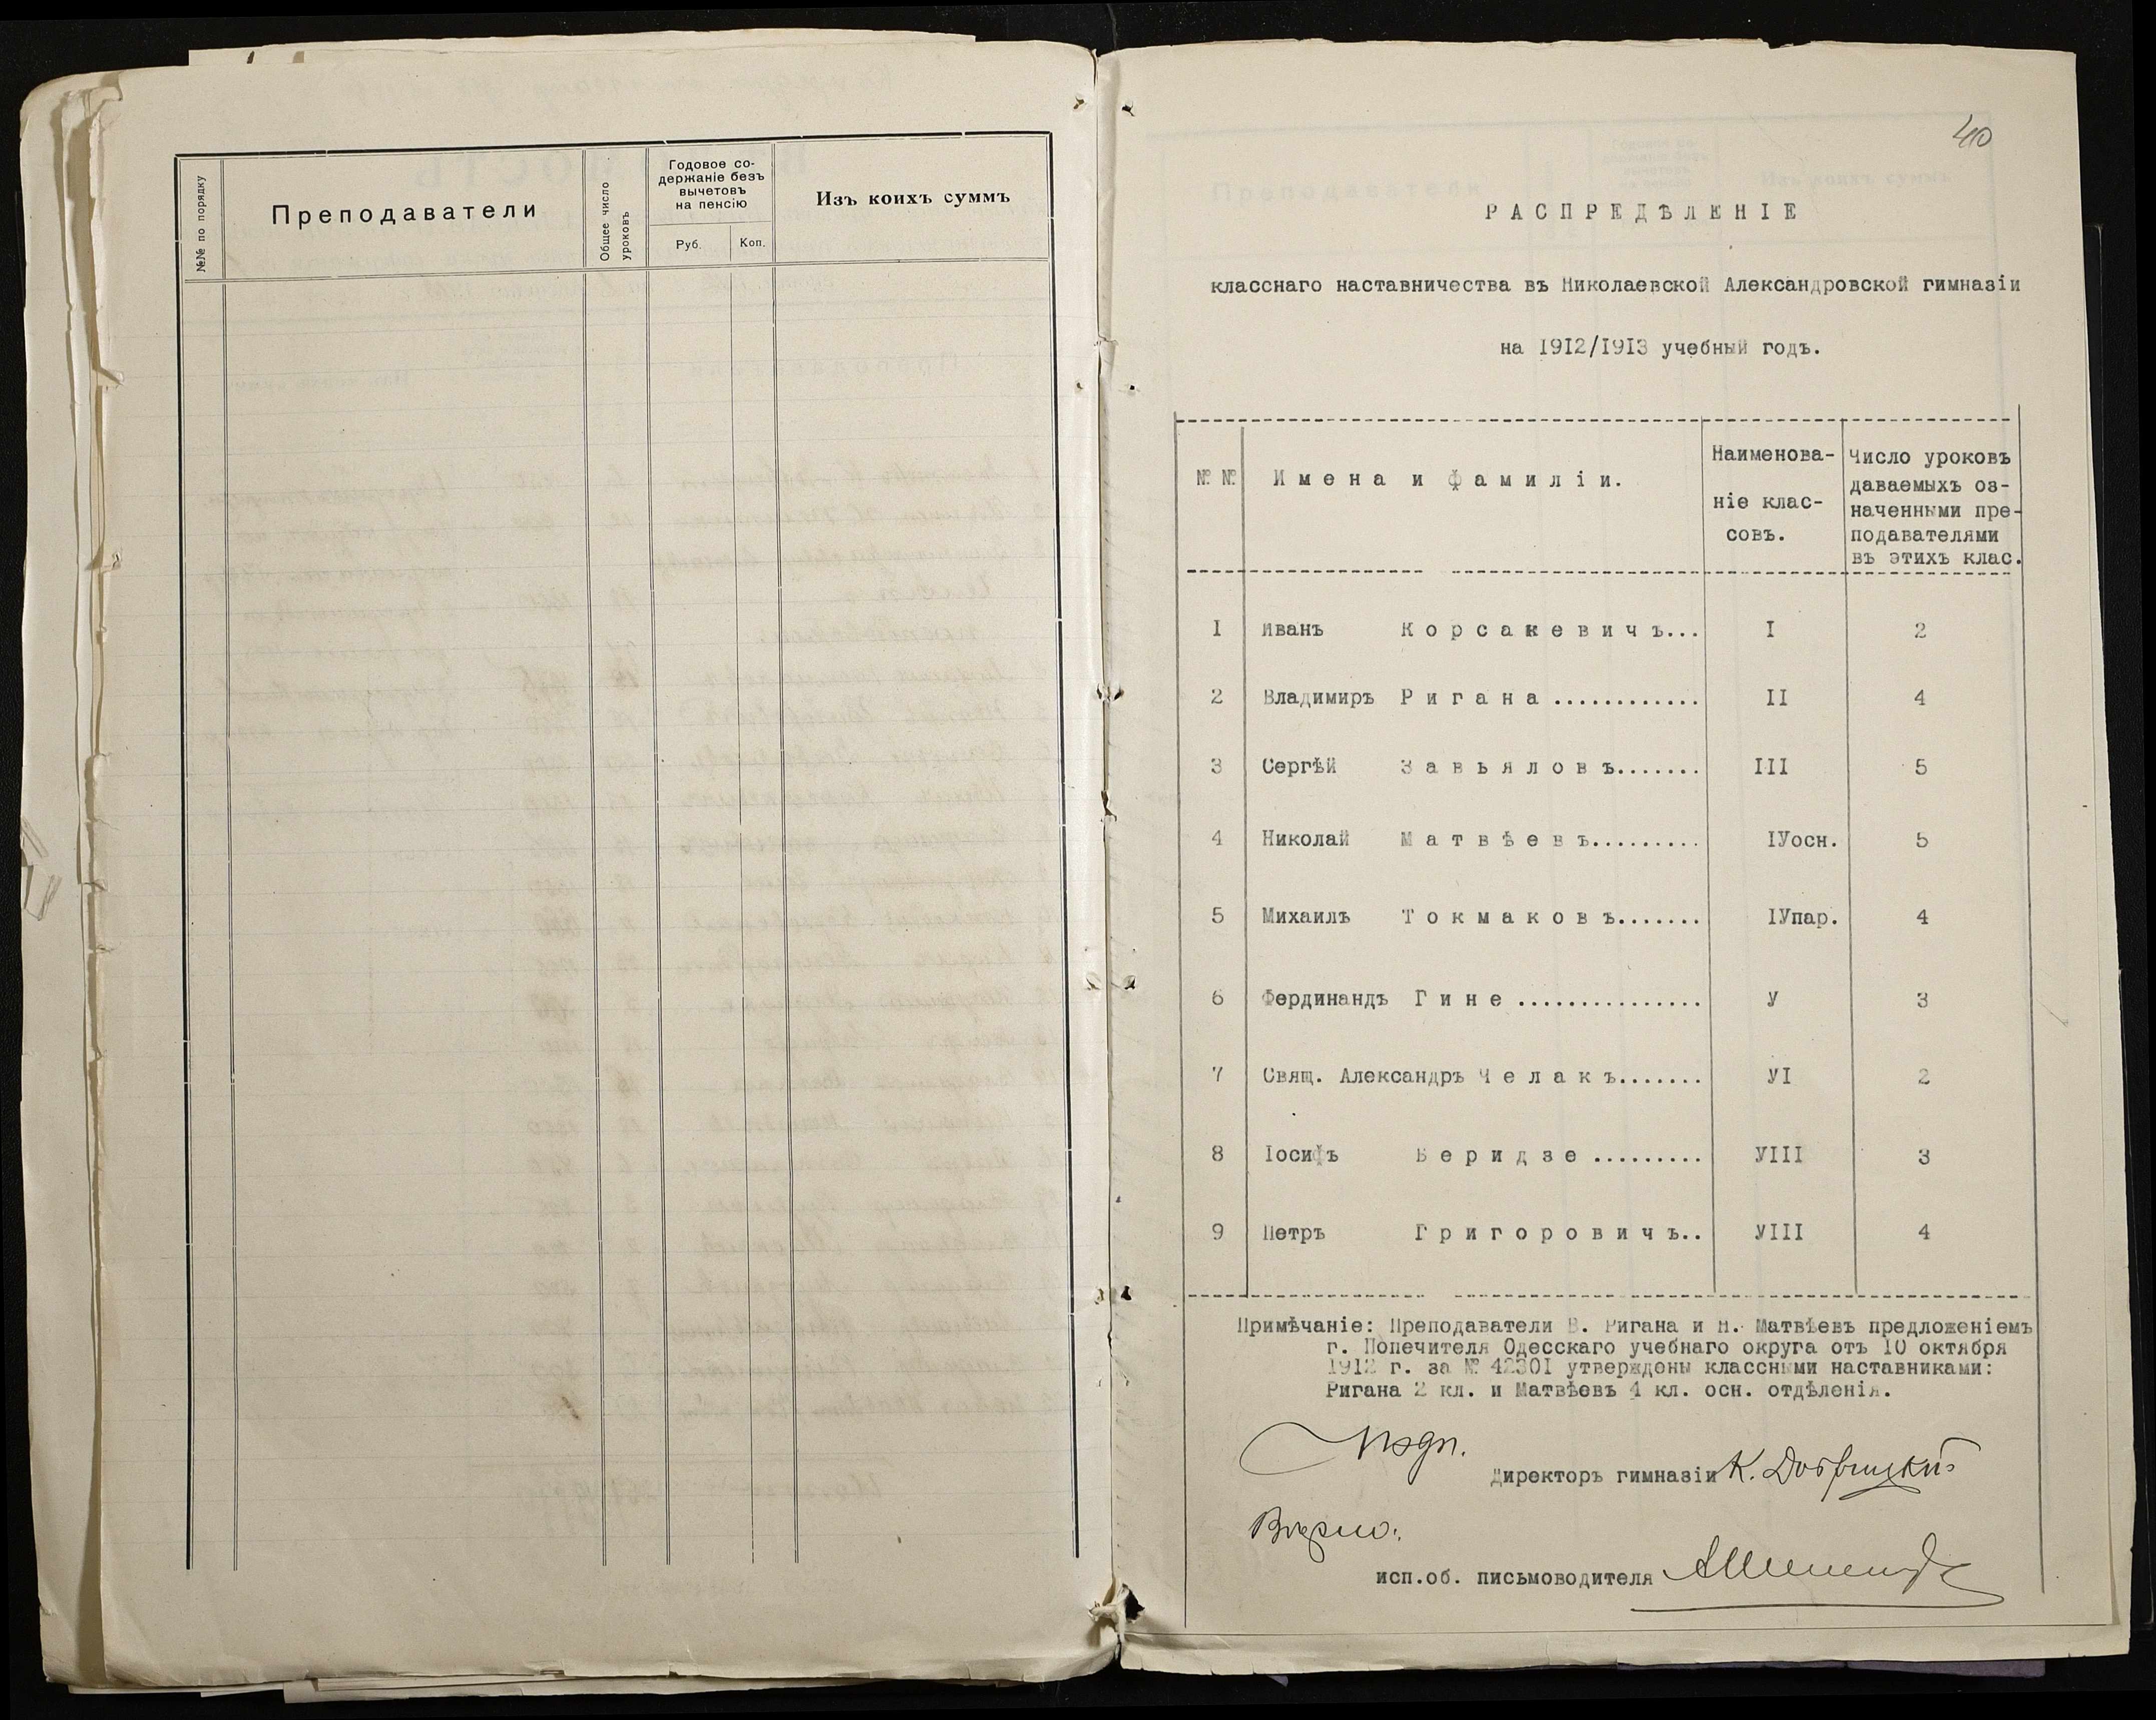 №№ по порядку
Преподаватели
Общее число
уроковъ
Годовое со-
держаніе безъ
вычетовъ
на пенсію
Руб.
Коп.
Изъ коихъ суммъ
40
РАСПРЕДѢЛЕНІЕ
класснаго наставничества въ Николаевской Александровской гимназіи
на 1912/1913 учебный годъ.
№ № Имена и фамиліи.
Наименова-
ніе клас-
совъ.
Число уроковъ
даваемыхъ оз-
наченными пре-
подавателями
въ этихъ клас.
1 Иванъ Корсакевичъ... I 2
2 Владимиръ Ригана............ II 4
3 Сергѣй Завьяловъ....... III 5
4 Николай Матвѣевъ......... IУосн. 5
5 Михаилъ Токмаковъ....... IУпар. 4
6 Фердинандъ Гине............... У 3
7 Свящ. Александръ Челакъ....... УI 2
8 Іосифъ Беридзе......... УIII 3
9 Петръ Григоровичъ.. УIII 4
Примѣчаніе: Преподаватели В. Ригана и Н. Матвѣевъ предложеніемъ
г. Попечителя Одесскаго учебнаго округа отъ 10 октября
1912 г. за № 42301 утверждены классными наставниками:
Ригана 2 кл. и Матвѣевъ 4 кл. осн. отдѣленія.
Директоръ гимназіи К.
Вѣрно:
исп.об. письмоводителя